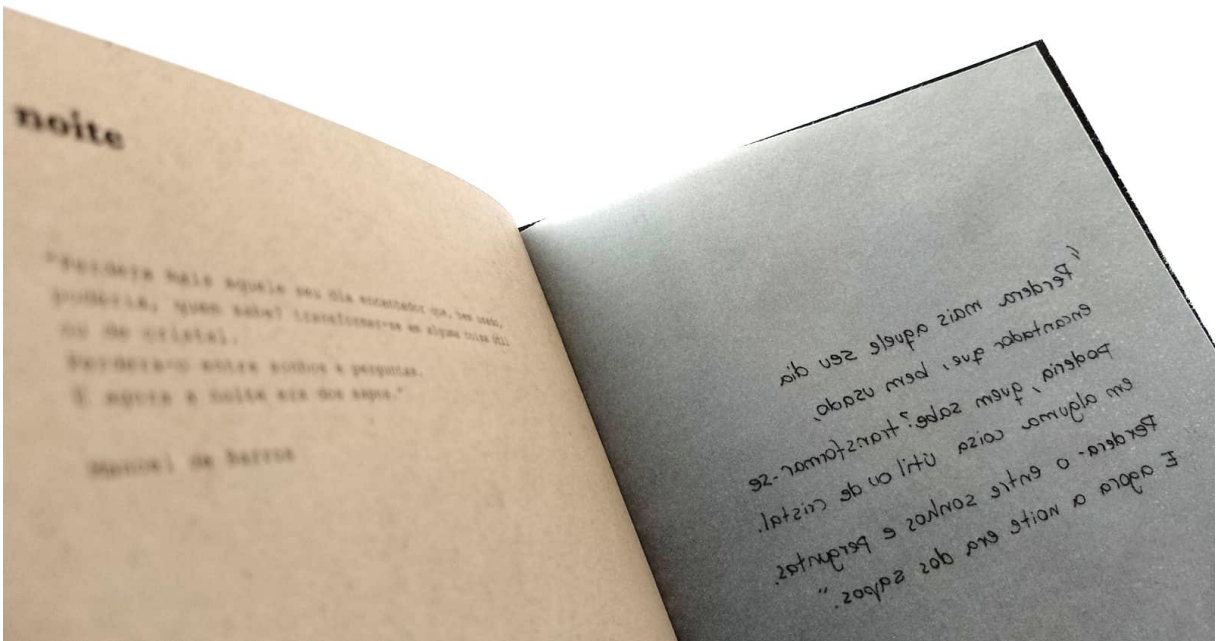 noite
"Perdera mais aquele seu dia encantador que, bem usado,
poderia, quem sabe? transformar-se em alguma coisa útil
ou de cristal.
Perdera-o entre sonhos e perguntas.
E agora a noite era dos sapos."
Manoel de Barros
"Perdera mais aquele seu dia
encantador que, bem usado,
poderia, quem sabe? transformar-se
em alguma coisa útil ou de cristal.
Perdera-o entre sonhos e perguntas.
E agora a noite era dos sapos."